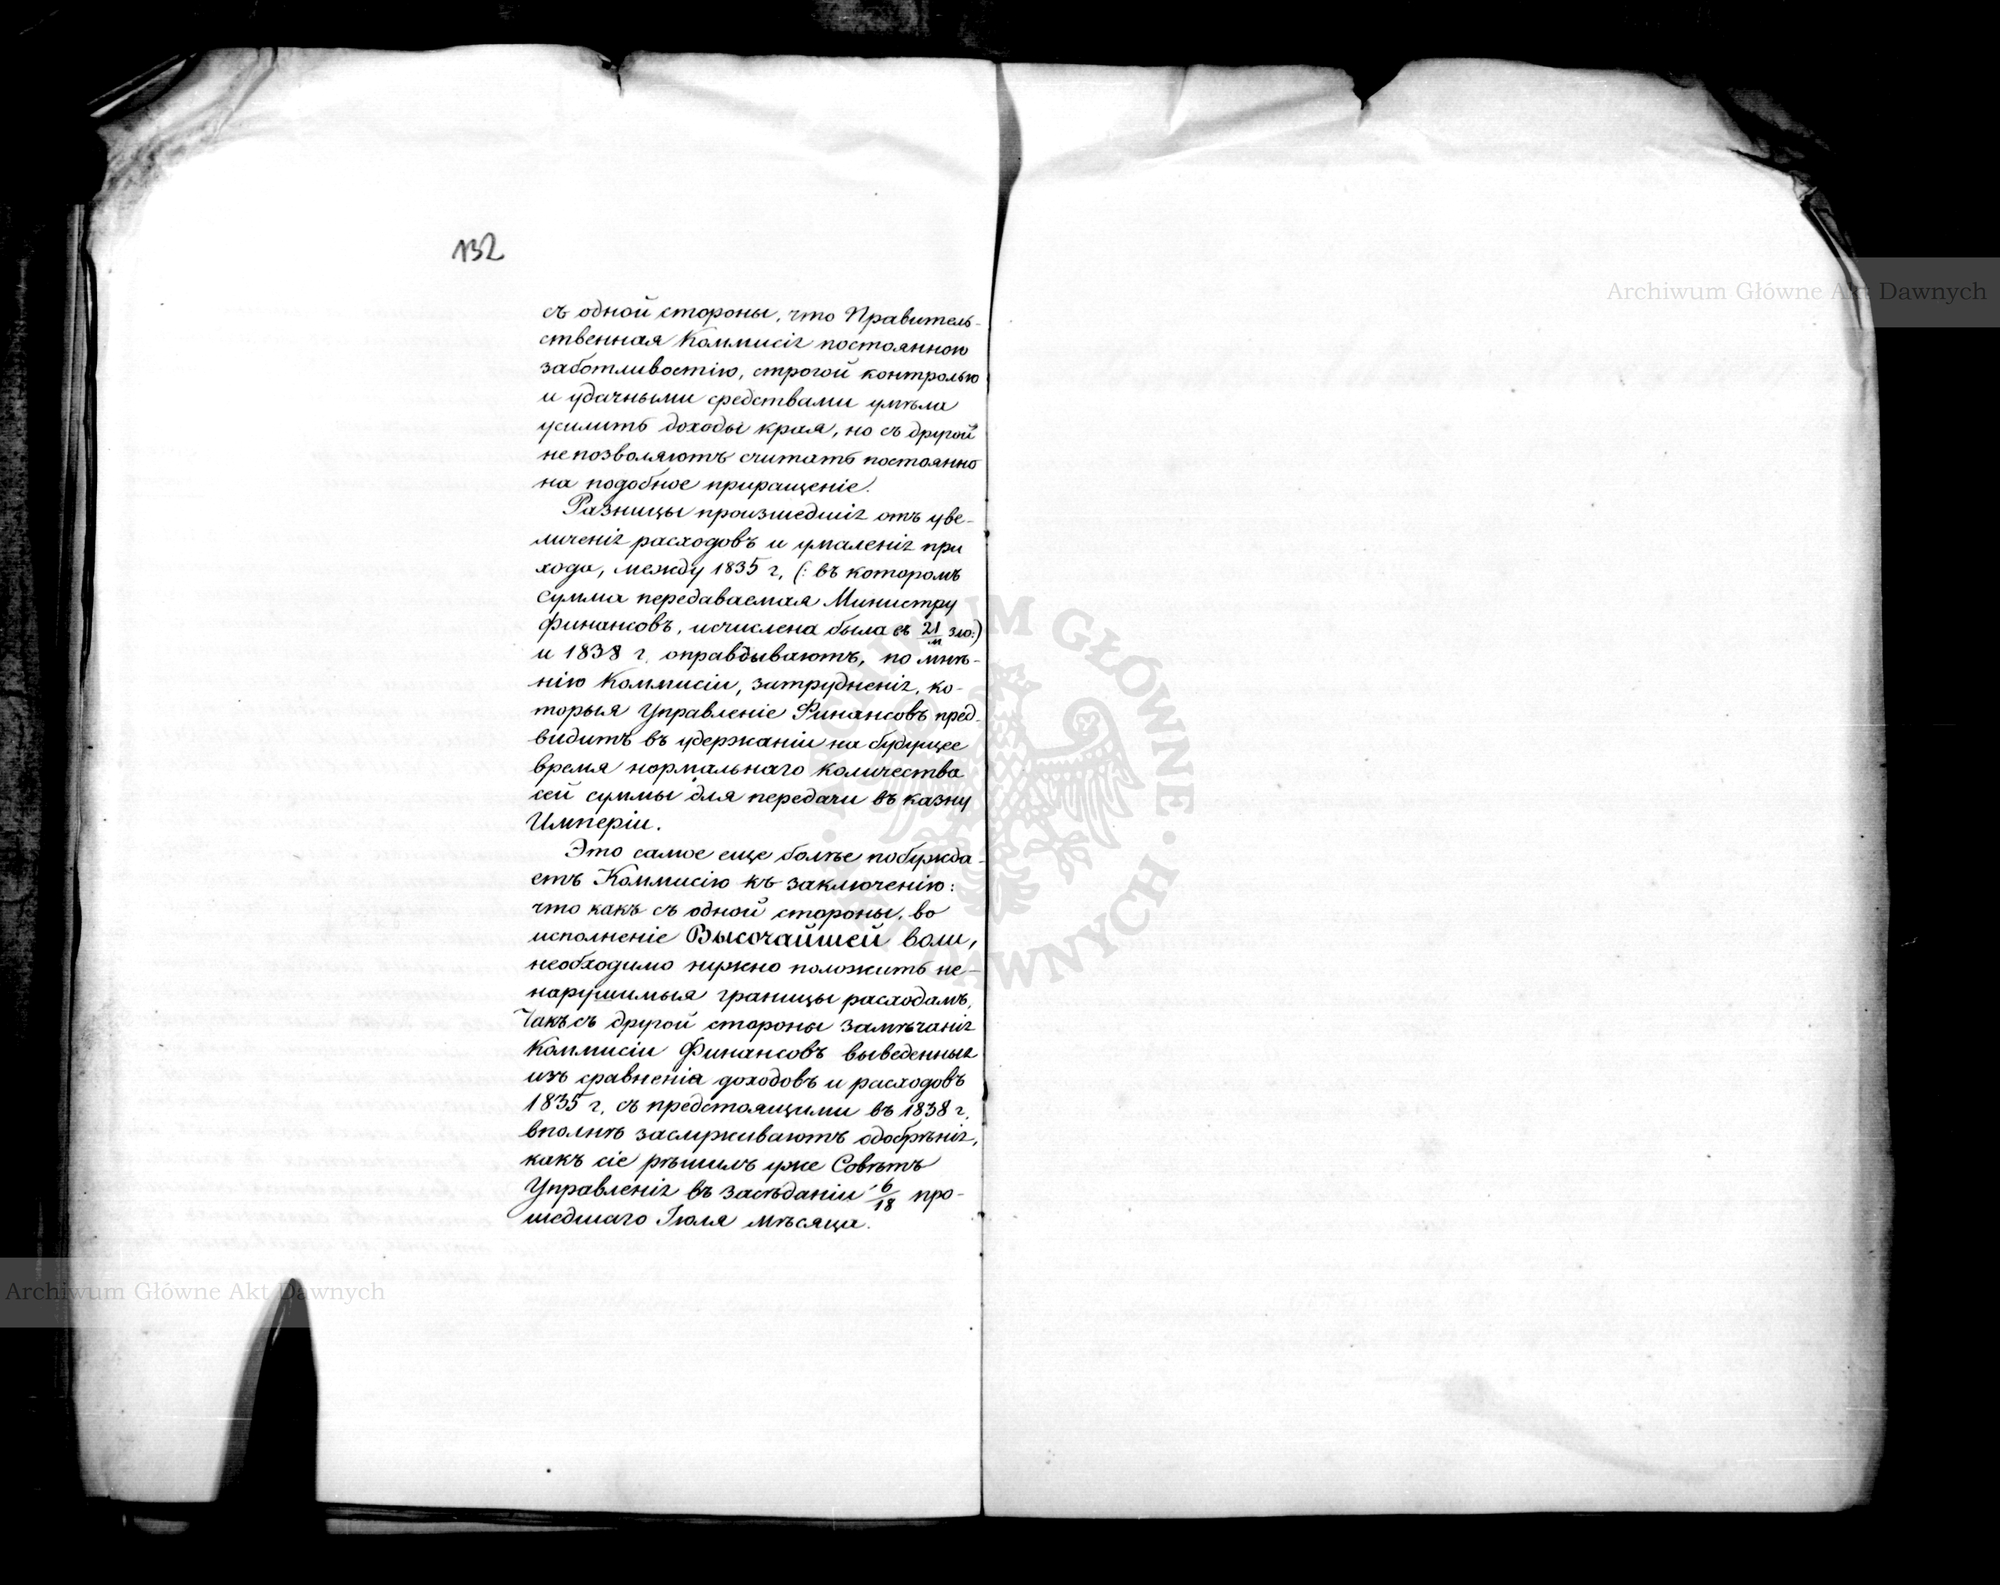 132
съ одной стороны, что Правитель-
ственная Коммисія постоянною
заботливостію, строгой контролью
и удачными средствами умѣла
усилить доходы края, но съ другой
не позволяютъ считать постоянно
на подобное приращеніе.
Разницы произшедшія отъ уве-
личенія расходовъ и умаленія при
хода, между 1835 г. (: въ которомъ
сумма передаваемая Министру
Финансовъ, исчислена была съ 21/м зло:)
и 1838 г. оправдываютъ, по мнѣ-
нію Коммисіи, затрудненія, ко-
торыя Управленіе Финансовъ пред-
видитъ въ удержаніи на будущее
время нормальнаго количества
сей суммы для передачи въ казну
Имперіи.
Это самое еще болѣе побужда-
етъ Коммисію къ заключенію:
что какъ съ одной стороны, во
исполненіе Высочайшей воли,
необходимо нужно положить не-
нарушимыя границы расходамъ,
Такъ съ другой стороны замѣчанія
Коммисіи Финансовъ выведенныя
изъ сравненія доходовъ и расходовъ
1835 г. съ предстоящими въ 1838 г.
вполнѣ заслуживаютъ одобрѣнія,
какъ сіе рѣшилъ уже Совѣтъ
Управленія въ засѣданіи 6/18 про-
шедшаго Іюля мѣсяца.
Archiwum Główne Akt Dawnych
Archiwum Główne Akt Dawnych